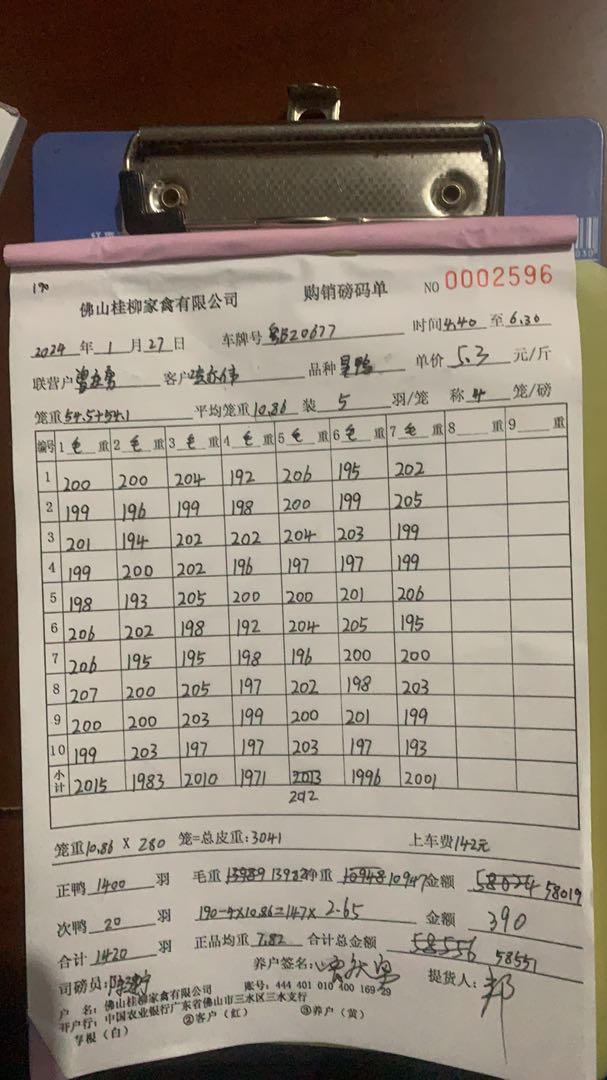 190
佛山桂柳家禽有限公司 购销磅码单 NO 0002596
2024 年 1 月 27 日 车牌号 粤B20677 时间 4.40 至 6.30
联营户 客户 品种 单价 5.3 元/斤
笼重 54.5+54.1 平均笼重 10.86 装 5 羽/笼 称 4 笼/磅
编号 1 毛 重 2 毛 重 3 毛 重 4 毛 重 5 毛 重 6 毛 重 7 毛 重 8 重 9 重
1 200 200 204 192 206 195 202
2 199 196 199 198 200 199 205
3 201 194 202 202 204 203 199
4 199 200 202 196 197 197 199
5 198 193 205 200 200 201 206
6 206 202 198 192 204 205 195
7 206 195 195 198 196 200 200
8 207 200 205 197 202 198 203
9 200 200 203 199 200 201 199
10 199 203 197 197 203 197 193
小计 2015 1983 2010 1971 2013 1996 2001
2012
笼重 10.86 X 280 笼=总皮重: 3041 上车费 142元
正鸭 1400 羽 毛重 13989 13988 净重 10948 10947 金额 58024 58019
次鸭 20 羽 190-4×10.86=147× 2.65 金额 390
合计 1420 羽 正品均重 7.82 合计总金额 58556 58551
司磅员: 养户签名: 提货人:
户 名: 佛山桂柳家禽有限公司 账号: 444 401 010 400 169 29
开户行: 中国农业银行广东省佛山市三水区三水支行
存根（白） ②客户（红） ③养户（黄）